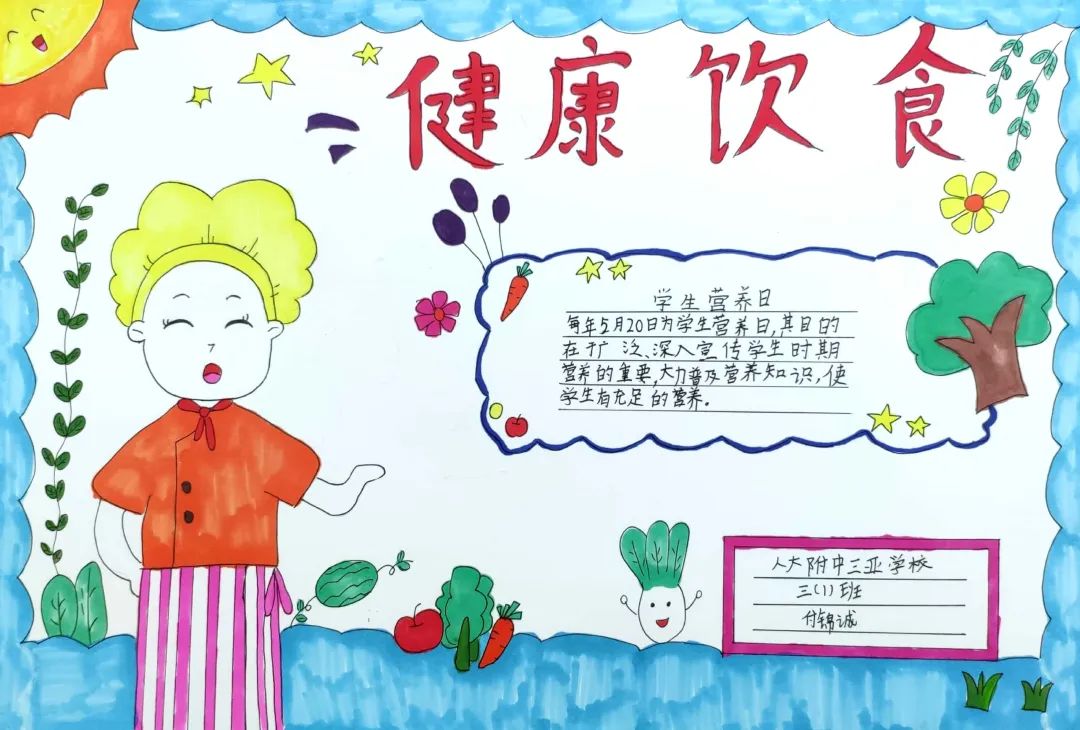 健康饮食
学生营养日
每年5月20日为学生营养日,其目的
在于广泛、深入宣传学生时期
营养的重要,大力普及营养知识,使
学生有充足的营养。
人大附中三亚学校
三(1)班
付锦诚